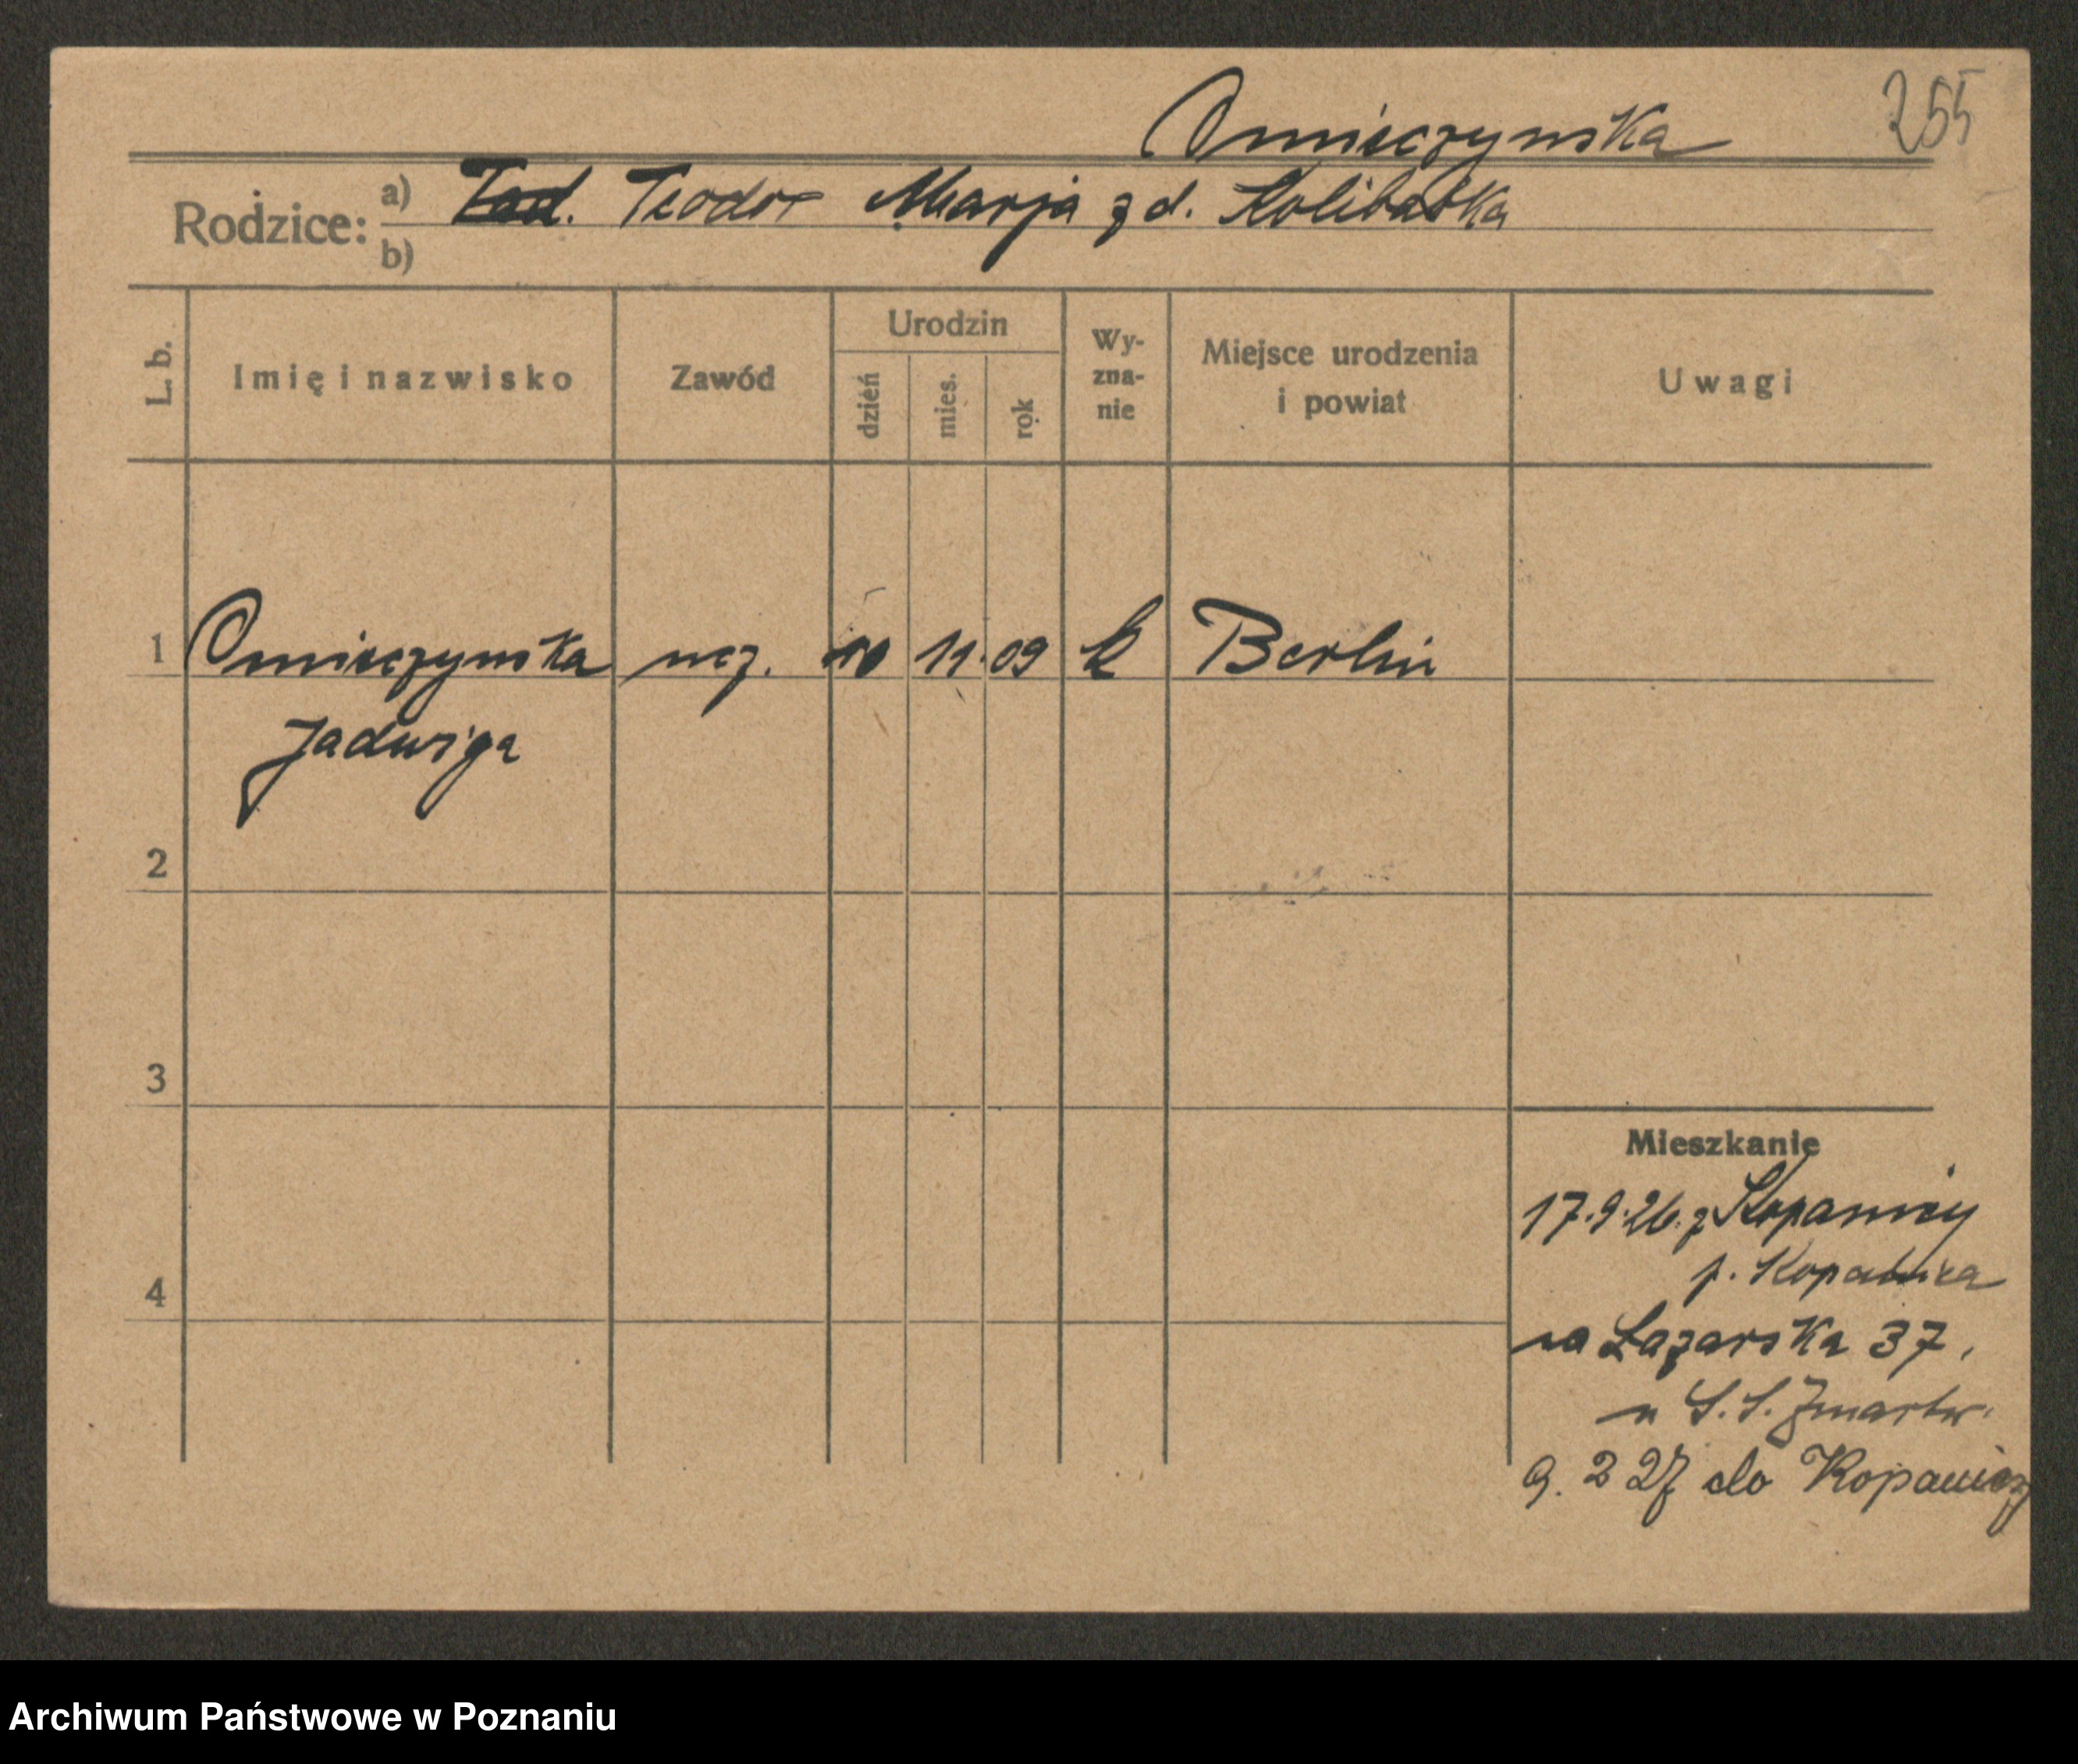 255
Omieczynska
Rodzice: a) Tad. Teodor Marja z d. Kolibabka
b)
L. b.
Imię i nazwisko
Zawód
Urodzin
dzień
mies.
rok
Wy-
zna-
nie
Miejsce urodzenia
i powiat
Uwagi
1 Omieczynska ucz. 10 11. 09 k Berlin
Jadwiga
2
3
4
Mieszkanie
17.9.26. z Kopanicy
p. Kopanica
na Łazarska 37.
u S.S. Zmartw.
9. 2 27 do Kopanicy
Archiwum Państwowe w Poznaniu